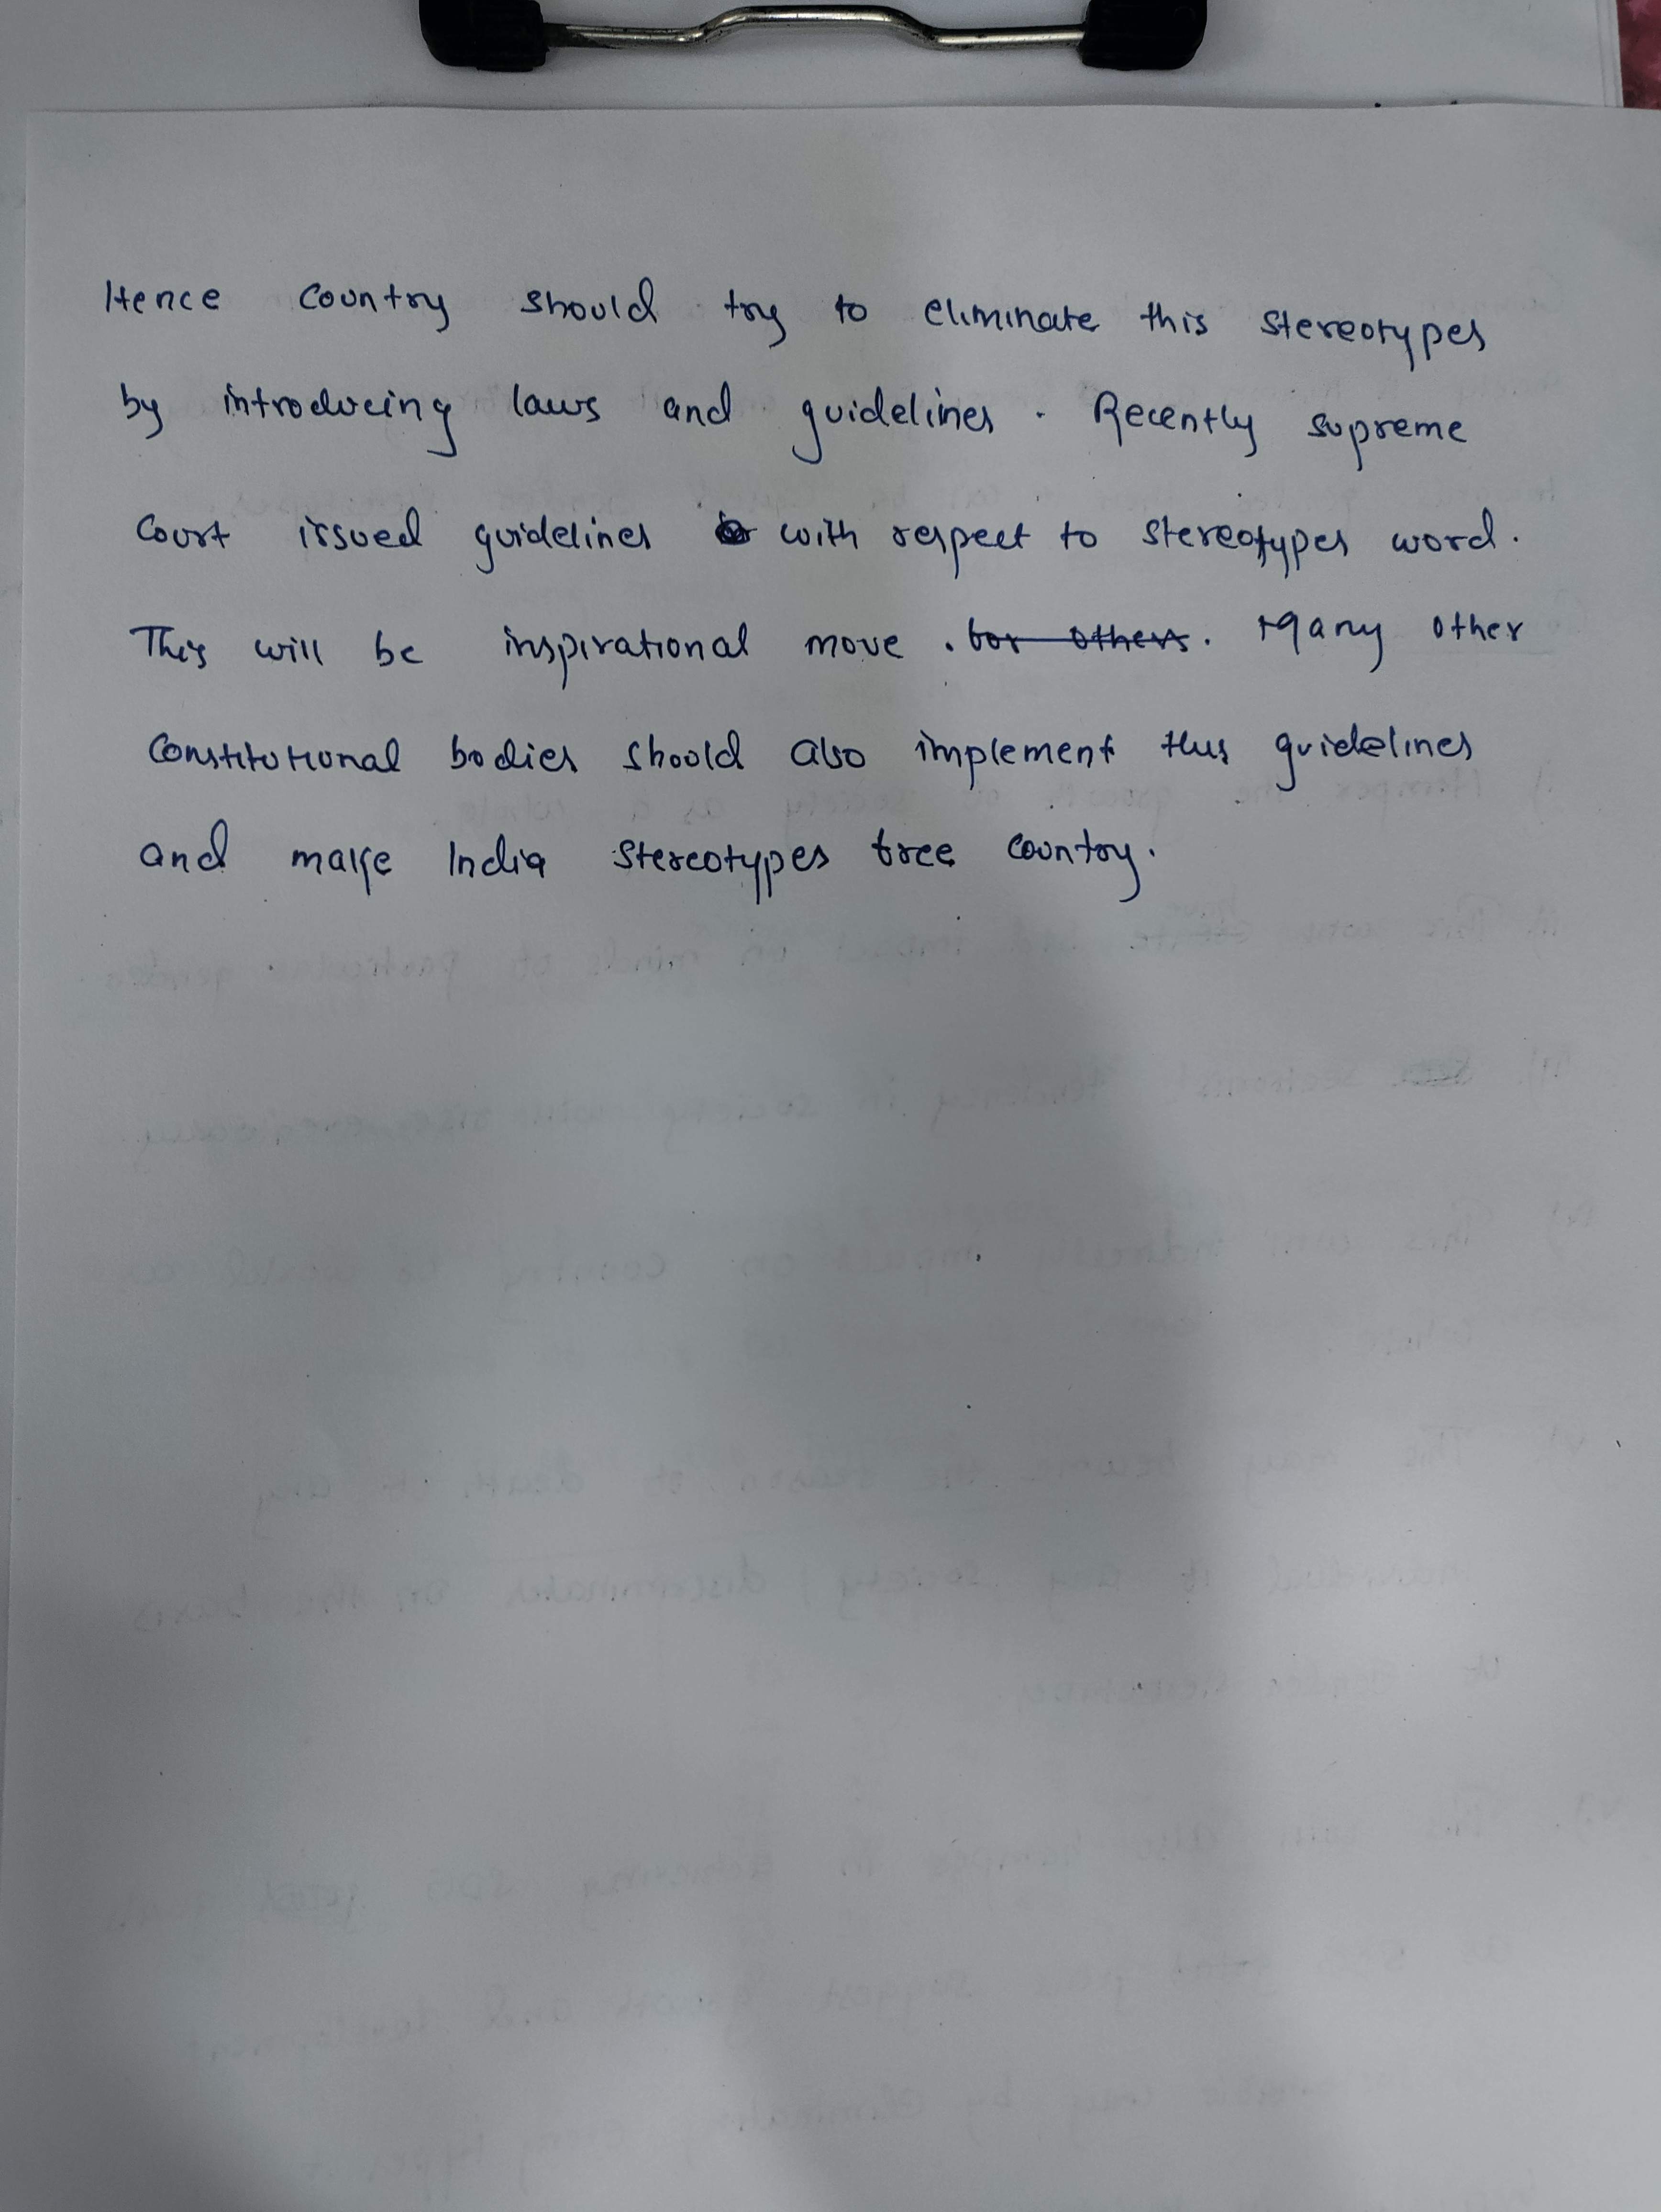 Hence country should try to eliminate this stereotypes
by introducing laws and guidelines. Recently supreme
court issued guidelines with respect to stereotypes word.
This will be inspirational move . for others. Many other
constitutional bodies should also implement this guidelines
and make India stereotypes free country.